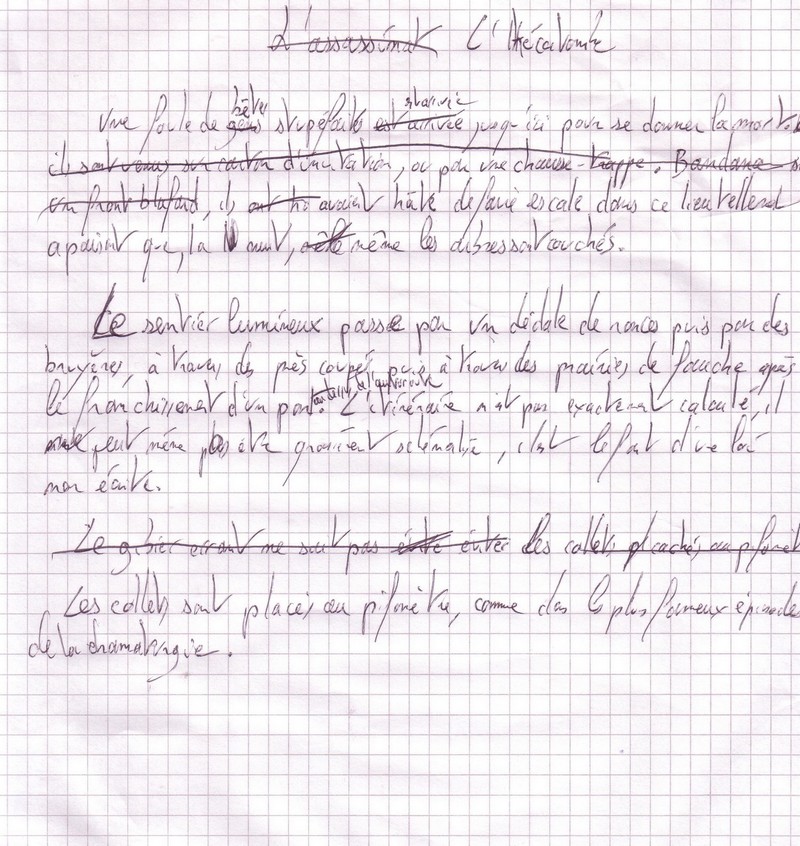 L'assassinat L'Hécatombe
Une foule de gens bêtes stupéfaits est arrivée jusqu'ici pour se donner la mort.
ils sont venus sur carton d'invitation, ou par une chausse-trappe. Bandana
un front blafard, ils ont avaient hâte de faire escale dans ce lieu tellement
apaisant que, la nuit, même les arbres sont couchés.
Le sentier lumineux passe par un dédale de ronces puis par des
bruyères, à travers des prés coupés puis à travers des prairies de fauche après
le franchissement d'un pont. L'itinéraire n'est pas exactement calculé, il
peut même pas être grossièrement schématisé, c'est le fait d'une loi
non écrite.
Le gibier errant ne sait pas éviter éviter les collets placés au pifomètre
Les collets sont placés au pifomètre, comme dans les plus fameux épisodes
de la dramaturgie.